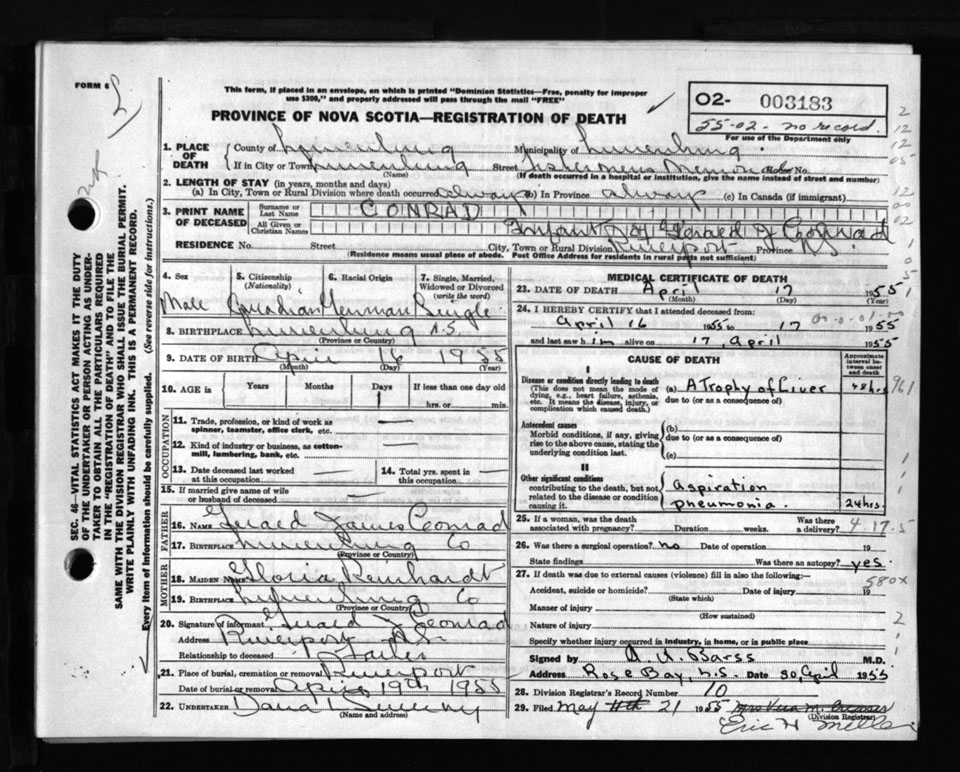 FORM 6
This form, if placed in an envelope, on which is printed "Dominion Statistics—Free, penalty for improper
use $300," and properly addressed will pass through the mail "FREE"
PROVINCE OF NOVA SCOTIA—REGISTRATION OF DEATH
02- 003183
55-02- no record.
For use of the Department only
1. PLACE OF DEATH
County of Lunenburg Municipality of Lunenburg
If in City or Town Lunenburg Street Fishermens Memorial No.
(Name) (If death occurred in a hospital or institution, give the name instead of street and number)
2. LENGTH OF STAY (in years, months and days)
(a) In City, Town or Rural Division where death occurred always (b) In Province always (c) In Canada (if immigrant)
3. PRINT NAME OF DECEASED
Surname or Last Name CONRAD
All Given or Christian Names Infant of Gerald J Conrad
RESIDENCE No. Street City, Town or Rural Division Riverport Province N.S.
(Residence means usual place of abode. Post Office Address for residents in rural parts not sufficient)
4. Sex 5. Citizenship (Nationality) 6. Racial Origin 7. Single, Married, Widowed or Divorced (write the word)
Male Canadian German Single
8. BIRTHPLACE Lunenburg N.S.
(Province or Country)
9. DATE OF BIRTH April 16 1955
(Month) (Day) (Year)
10. AGE is Years Months Days 1 If less than one day old hrs. or min.
OCCUPATION
11. Trade, profession, or kind of work as spinner, teamster, office clerk, etc. —
12. Kind of industry or business, as cotton-mill, lumbering, bank, etc. —
13. Date deceased last worked at this occupation — 14. Total yrs. spent in this occupation —
15. If married give name of wife or husband of deceased —
FATHER
16. NAME Gerald James Conrad
17. Birthplace Lunenburg Co
(Province or Country)
MOTHER
18. MAIDEN NAME Gloria Reinhardt
19. BIRTHPLACE Lunenburg Co
(Province or Country)
20. Signature of informant Gerald J Conrad
Address Riverport N.S.
Relationship to deceased Father
21. Place of burial, cremation or removal Riverport
Date of burial or removal April 19th 1955
22. UNDERTAKER
(Name and address)
MEDICAL CERTIFICATE OF DEATH
23. DATE OF DEATH April 17 1955
(Month) (Day) (Year)
24. I HEREBY CERTIFY that I attended deceased from:
April 16 1955 to 17 1955
and last saw him alive on 17, April 1955
CAUSE OF DEATH
Approximate interval between onset and death
I
Disease or condition directly leading to death (This does not mean the mode of dying, e.g., heart failure, asthenia, etc. It means the disease, injury, or complication which caused death.)
(a) Atrophy of Liver 48hrs 961
due to (or as a consequence of)
Antecedent causes
Morbid conditions, if any, giving rise to the above cause, stating the underlying condition last.
(b)
due to (or as a consequence of)
(c)
II
Other significant conditions contributing to the death, but not related to the disease or condition causing it.
Aspiration
pneumonia. 24hrs.
25. If a woman, was the death associated with pregnancy? Duration weeks. Was there a delivery? 4.17.5
26. Was there a surgical operation? no Date of operation 19
State findings Was there an autopsy? yes
27. If death was due to external causes (violence) fill in also the following:—
580x
Accident, suicide or homicide? Date of injury 19
(State which)
Manner of injury
(How sustained)
Nature of injury
Specify whether injury occurred in industry, in home, or in public place
Signed by Barss M.D.
Address Rose Bay, N.S. Date 30 April 1955
28. Division Registrar's Record Number 10
29. Filed May 21 1955
(Division Registrar)
Eric H Miller
SEC. 46—VITAL STATISTICS ACT MAKES IT THE DUTY
OF THE UNDERTAKER OR PERSON ACTING AS UNDER-
TAKER TO OBTAIN ALL THE PARTICULARS REQUIRED
IN THE "REGISTRATION OF DEATH" AND TO FILE THE
SAME WITH THE DIVISION REGISTRAR WHO SHALL ISSUE THE BURIAL PERMIT.
WRITE PLAINLY WITH UNFADING INK. THIS IS A PERMANENT RECORD.
Every item of information should be carefully supplied. (See reverse side for instructions.)